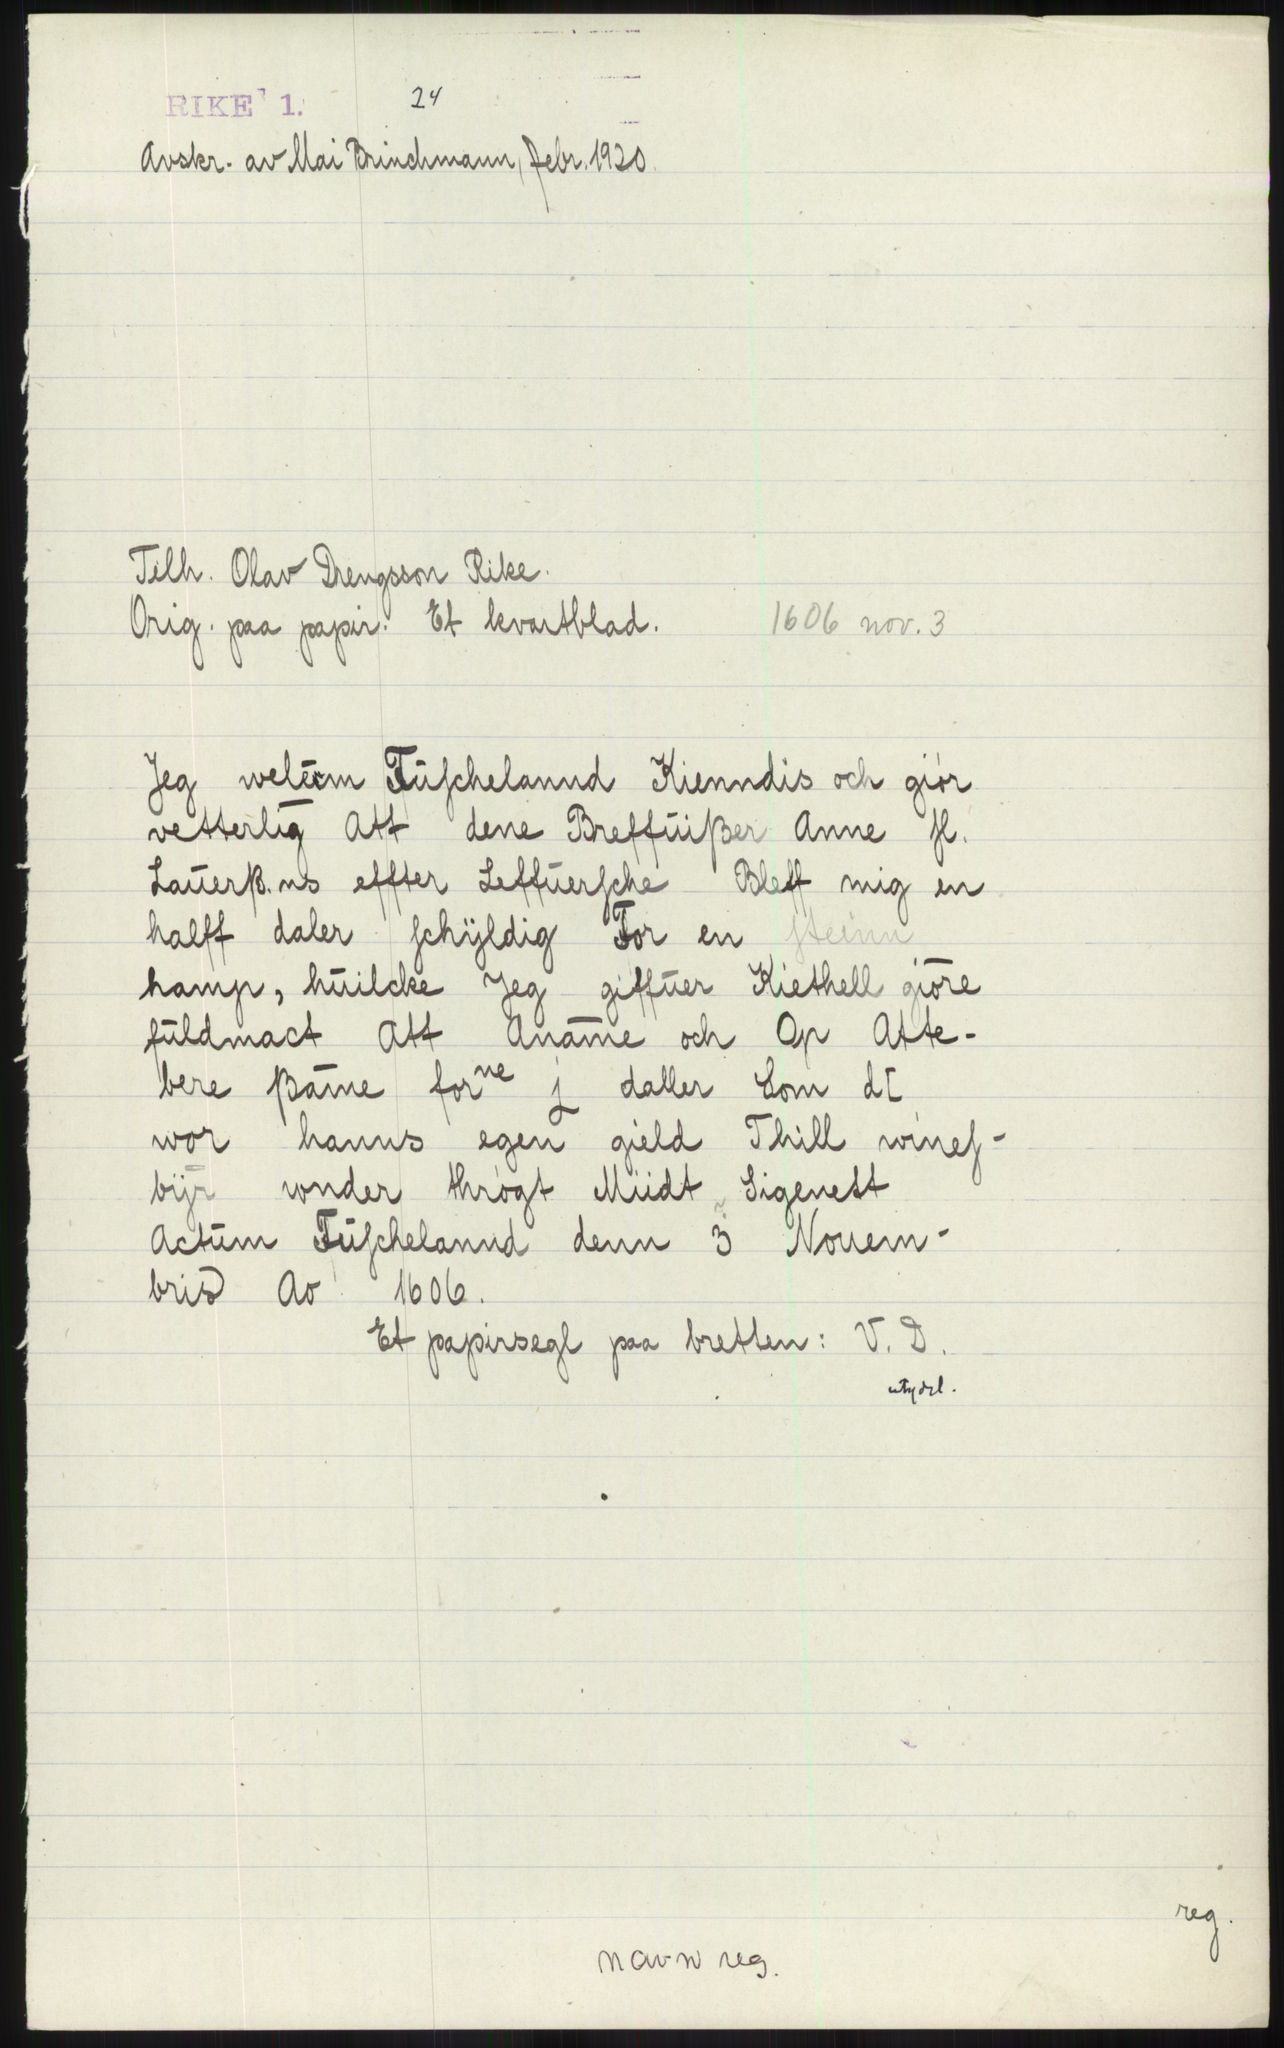 RIKE 1. 24
Avskr. av Mai Brinchmann, febr. 1920.
Tilh. Olav Drengsson Rike.
Orig. paa papir. Et kvartblad. 1606 nov. 3
Jeg welūm Fūſchelannd Kienndis och giór
vetterlig Att dene Breffūißer Anne H.
Laūerß.ns effter Leffūerſche Bleff mig en
halff daler ſchÿldig For en ſteinn
hamp, hūilcke Jeg giffūer Kiethell giōre
fūldmact Att Aname och Op Atte-
bere ßame forⁿᵉ j daller Som d[
wor hanns egen gield Thill wineſ-
bÿr wnder thrógt Miidt Sigenett
Actūm Fūſchelannd denn 3 Nouem-
bris Ao 1606.
Et papirsegl paa bretten: V. D.
utydel.
reg.
navn reg.